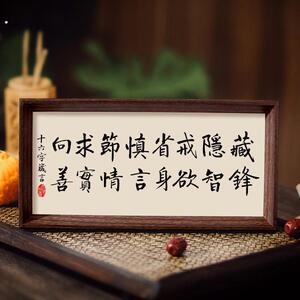 藏鋒
隱智
戒欲
省身
慎言
節情
求實
向善
十六字箴言